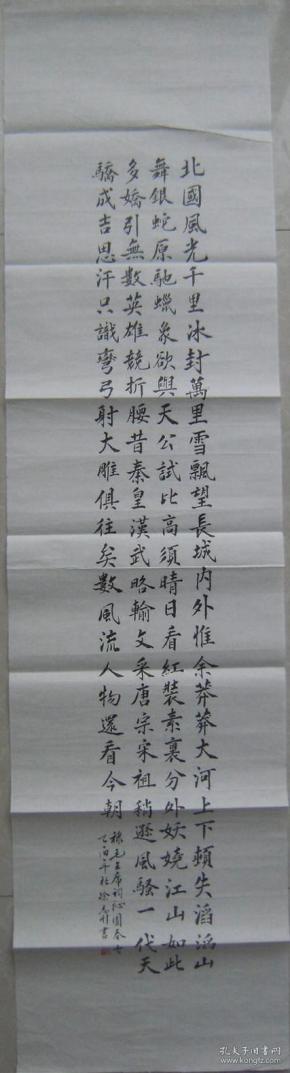 北國風光千里冰封萬里雪飄望長城内外惟余莽莽大河上下頓失滔滔山
舞銀蛇原馳蠟象欲與天公試比高須晴日看紅裝素裹分外妖嬈江山如此
多嬌引無數英雄競折腰昔秦皇漢武略輸文采唐宗宋祖稍遜風騷一代天
驕成吉思汗只識彎弓射大雕俱往矣數風流人物還看今朝
毛主席詞沁園春
書
孔夫子旧书网